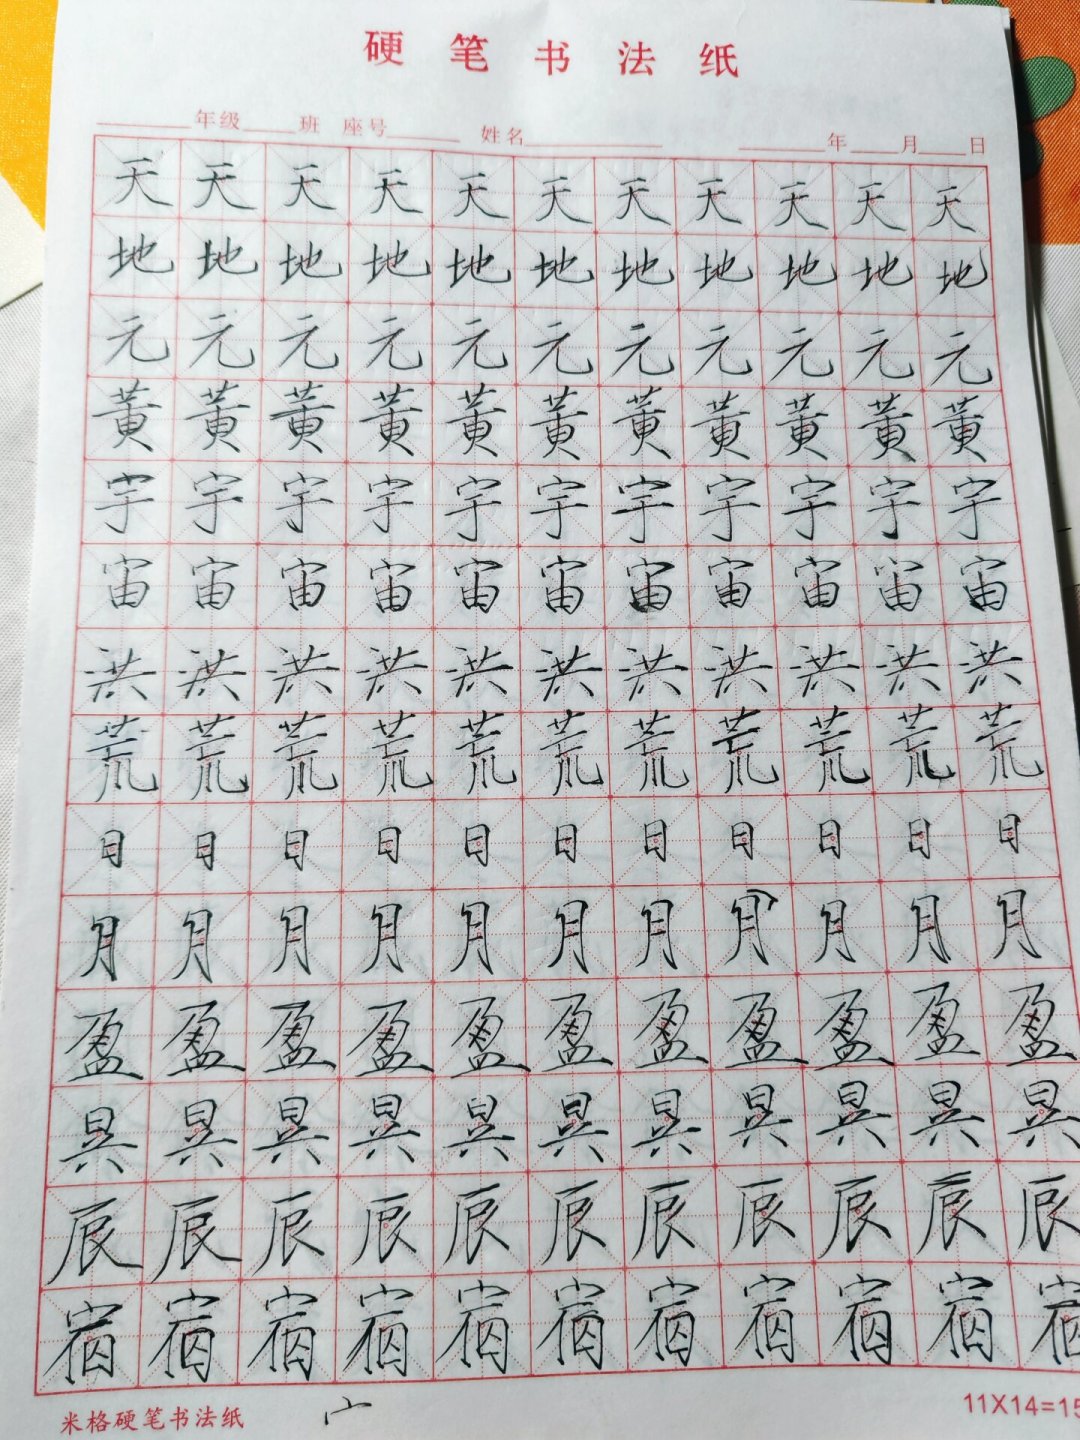 硬笔书法纸
年级 班 座号 姓名 年 月 日
天天天天天天天天天天天
地地地地地地地地地地地
元元元元元元元元元元元
黄黄黄黄黄黄黄黄黄黄黄
宇宇宇宇宇宇宇宇宇宇宇
宙宙宙宙宙宙宙宙宙宙宙
洪洪洪洪洪洪洪洪洪洪洪
荒荒荒荒荒荒荒荒荒荒荒
日日日日日日日日日日日
月月月月月月月月月月月
盈盈盈盈盈盈盈盈盈盈盈
昃昃昃昃昃昃昃昃昃昃昃
辰辰辰辰辰辰辰辰辰辰辰
宿宿宿宿宿宿宿宿宿宿宿
米格硬笔书法纸 宀 11X14=15